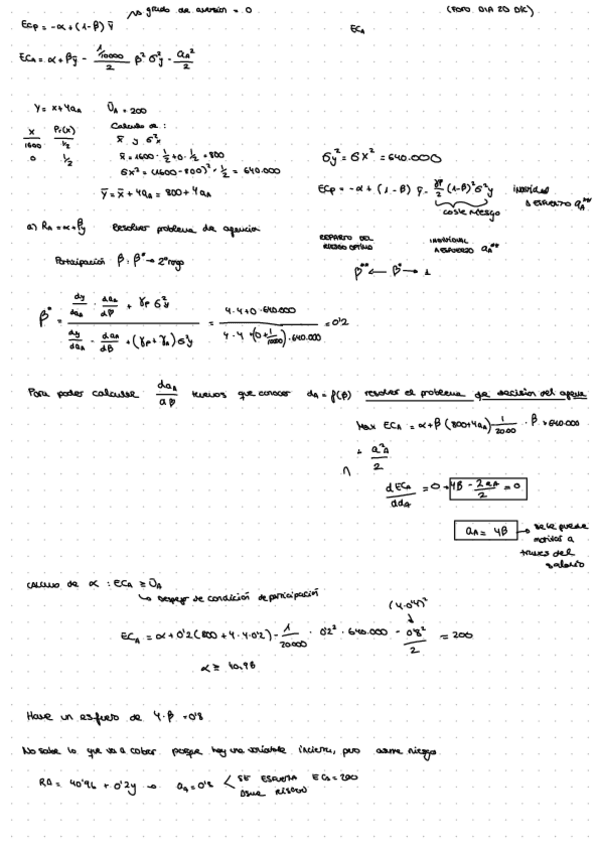 grado de aversión = 0
(TODO DIA 20 DIC)
ECp = -α + (1-β) ȳ
ECA
ECA = α + βȳ - 1/10000/2 β² σ²y - aA²/2
Y = x + 4aA ŪA = 200
X Pr(x)
1600 1/2
0 1/2
Calculo de :
x̄ y σ²x
x̄ = 1600 · 1/2 + 0 · 1/2 = 800
σx² = (1600 - 800)² · 1/2 = 640.000
ȳ = x̄ + 4aA = 800 + 4aA
σy² = σx² = 640.000
ECp = -α + (1-β) ȳ - γp/2 (1-β)² σ²y
coste riesgo
a) RA = α + βy Resolver problema de agencia
REPARTO DEL
RIESGO OPTIMO
aA**
Participación β : β* → 2º rango
β** ← β* → 1
β* = dy/daA · daA/dβ + γp σ²y / dy/daA · daA/dβ + (γp + γA) σ²y = 4·4+0·640.000 / 4·4+(0+1/10000)·640.000 = 0'2
Para poder calcular daA/dβ tenemos que conocer aA = f(β) resolver el problema de decisión del agente
Max ECA = α + β (800+4aA) 1/20.000 · β · 640.000
a²A/2
dECA/daA = 0 → 4β - 2aA/2 = 0
aA = 4β → se le puede
motivar a
traves del
salario
CALCULO de α : ECA ≥ ŪA
↳ Despejar de condición de participación
(4·0'4)²
ECA = α + 0'2(800 + 4·4·0'2) - 1/20.000 · 0'2² · 640.000 - 0'8²/2 = 200
α ≥ 40,96
Hace un esfuerzo de 4·β = 0'8
No sabe lo que va a cobrar porque hay una variable incierta, pero asume riesgo
RA = 40'96 + 0'2y → aA = 0'8 < SE ESFUERZA ECA = 200
asume RIESGO